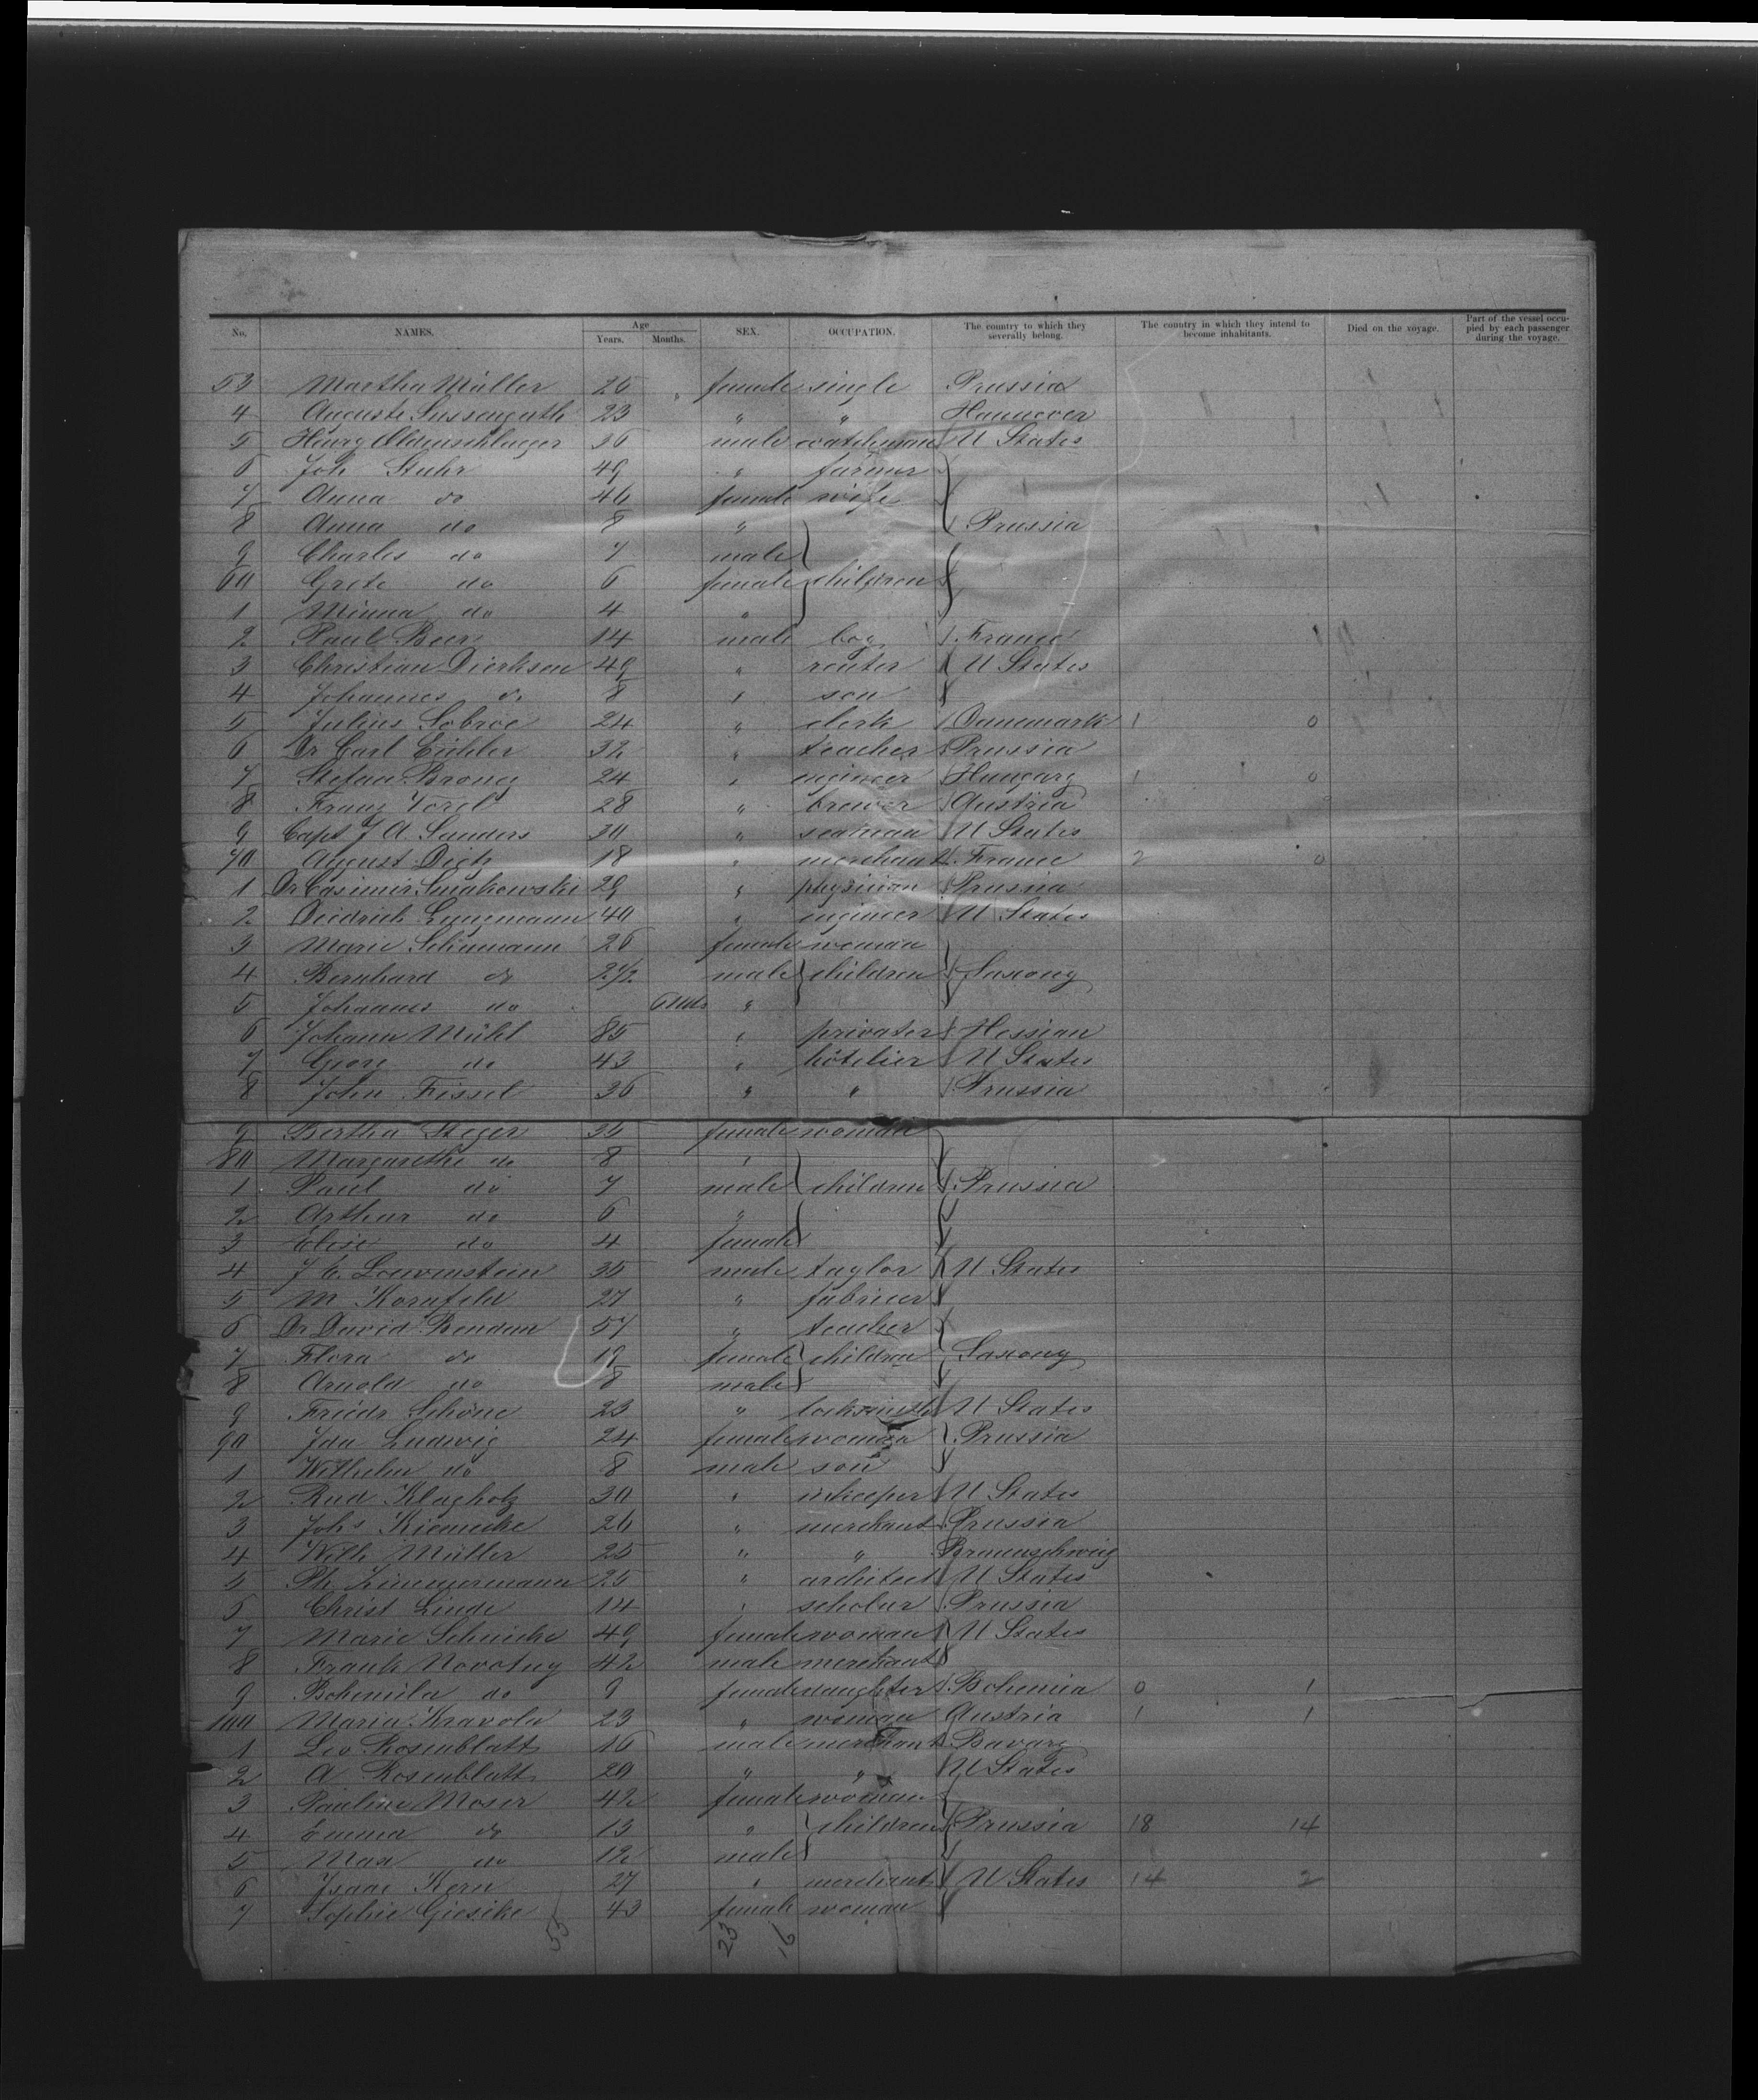 No. NAMES. Age Years. Months. SEX. OCCUPATION. The country to which they severally belong. The country in which they intend to become inhabitants. Died on the voyage. Part of the vessel occupied by each passenger during the voyage.
53 Martha Müller 25 " female single Prussia
4 Auguste Sussenguth 23 " " Hannover
5 Henry Oldenschlager 36 male watchman U States
6 Joh Stuhr 49 " farmer
7 Anna do 46 female wife
8 Anna do 8 " Prussia
9 Charles do 7 male
60 Grete do 6 female children
1 Minna do 4 "
2 Paul Beer 14 male boy France
3 Christian Dierksen 49 " renter U States
4 Johannes do 8 " son
5 Julius Sobroe 24 " clerk Danemark 1 0
6 Dr Carl Eichler 32 " teacher Prussia
7 Stefan 24 " engineer Hungary 1 0
8 Franz Vorel 28 " brewer Austria
9 Capt J A Sanders 30 " seaman U States
70 August Dick 18 " merchant France 2 0
1 Dr Casimir 29 " physician Prussia
2 Diedrich Lungmann 40 " engineer U States
3 Marie Schumann 26 female woman
4 Bernhard do 2½ male children Saxony
5 Johannes do 6 Mds "
6 Johann Mühl 85 " privater Hessian
7 Georg do 43 " hôtelier U States
8 John Fissel 36 " " Prussia
9 Bertha Steger 35 female woman
80 Margarethe do 8 "
1 Paul do 7 male children Prussia
2 Arthur do 6 "
3 Elise do 4 female
4 J E Loewenstein 35 male taylor U States
5 M Kornfeld 27 " fabricer
6 Dr David Rendan 57 " teacher
7 Flora do 19 female children Saxony
8 Arnold do 8 male
9 Friedr Schöne 23 " locksmith U States
90 Ida Ludwig 24 female woman Prussia
1 Wilhelm do 8 male son
2 Rud Klagholz 30 " inkeeper U States
3 Johs Kienecke 26 " merchant Prussia
4 Wilh Müller 25 " " Braunschweig
5 Ph Zimmermann 25 " architect U States
6 Christ Linde 14 " scholar Prussia
7 Marie Schuicke 49 female woman U States
8 Frank Novotny 42 male merchant
9 Bohemila do 9 female daughter Bohemia 0 1
100 Maria Kravola 23 " woman Austria 1 1
1 Leo Rosenblatt 16 male merchant Bavary
2 A Rosenblatt 20 " " U States
3 Pauline Moser 42 female woman
4 Emma do 13 " children Prussia 18 14
5 Max do 12 male
6 Isaac Kern 27 " merchant U States 14 2
7 Sophie Giesike 43 female woman
55 23 16